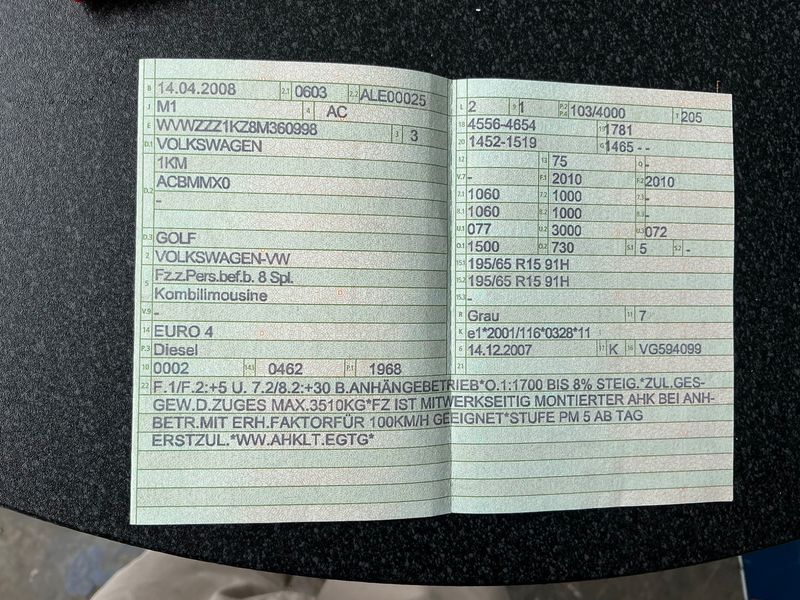 B 14.04.2008 2.1 0603 2.2 ALE00025
J M1 4 AC
E WVWZZZ1KZ8M360998 3 3
D.1 VOLKSWAGEN
1KM
D.2 ACBMMX0
-
D.3 GOLF
2 VOLKSWAGEN-VW
5 Fz.z.Pers.bef.b. 8 Spl.
Kombilimousine
V.9 -
14 EURO 4
P.3 Diesel
10 0002 14.1 0462 P.1 1968
L 2 9 1 P.2 P.4 103/4000 T 205
18 4556-4654 19 1781
20 1452-1519 G 1465 - -
12 - 13 75 Q -
V.7 - F.1 2010 F.2 2010
7.1 1060 7.2 1000 7.3 -
8.1 1060 8.2 1000 8.3 -
U.1 077 U.2 3000 U.3 072
O.1 1500 O.2 730 S.1 5 S.2 -
15.1 195/65 R15 91H
15.2 195/65 R15 91H
15.3 -
R Grau 11 7
K e1*2001/116*0328*11
6 14.12.2007 17 K 16 VG594099
21
22 F.1/F.2:+5 U. 7.2/8.2:+30 B.ANHÄNGEBETRIEB*O.1:1700 BIS 8% STEIG.*ZUL.GES-
GEW.D.ZUGES MAX.3510KG*FZ IST MITWERKSEITIG MONTIERTER AHK BEI ANH-
BETR.MIT ERH.FAKTORFÜR 100KM/H GEEIGNET*STUFE PM 5 AB TAG
ERSTZUL.*WW.AHKLT.EGTG*